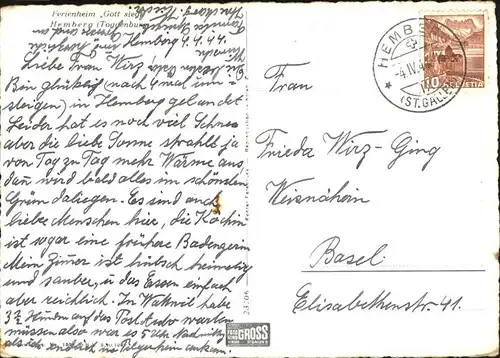 Ferienheim „Gott sieg
Hemberg (Toggenbur
Hemberg 4.4.44.
Liebe Frau Wirz
Bin glücklich (nach 4 mal um-
steigen) in Hemberg gelandet
Leider hat es noch viel Schnee
aber die liebe Sonne strahlt ja
von Tag zu Tag mehr Wärme aus,
dann wird bald alles im schönsten
Grün daliegen. Es sind auch
liebe Menschen hier, die Köchin
ist sogar eine frühere Badenerin
Mein Zimer ist hübsch heimelig
und sauber, u das Essen einfach
aber reichlich. In Wattwil habe
3½ Stunden auf das Post Auto warten
müssen also war es 5 Uhr Nachmittag
als ich endlich im Pilgerheim ankam.
HEMBE
-4.IV.4
(ST.GALLE
10 HELVETIA
Frau
Frieda Wirz-Ging
Weisnähin
Basel
Elisabethenstr. 41.
GROSS